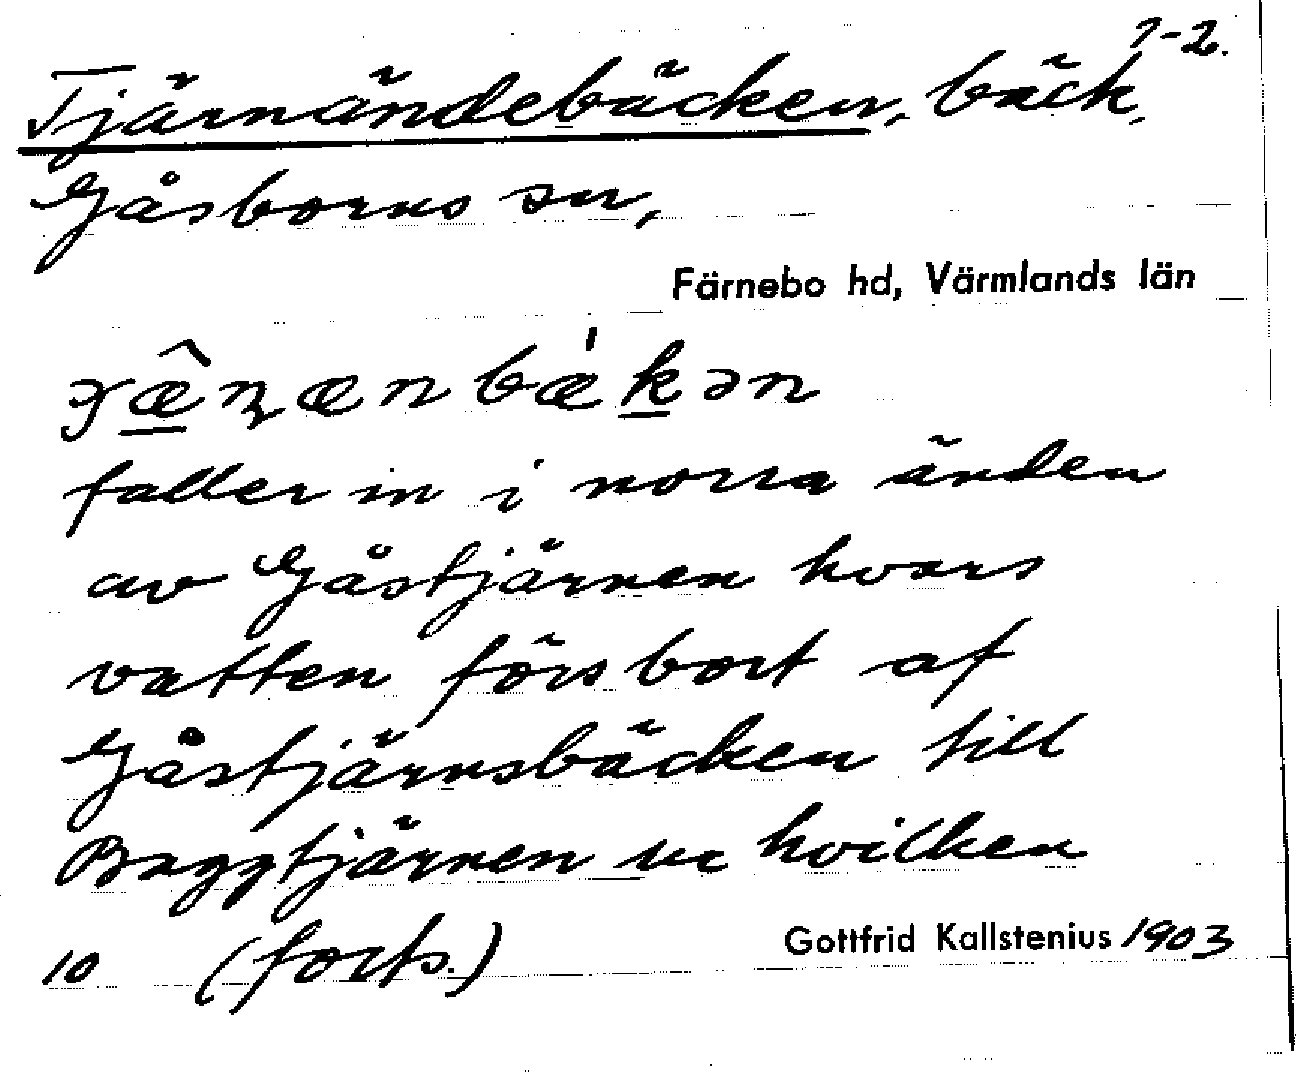 1-2.
Tjärnändebäcken, bäck,
Gåsborns sn,
Färnebo hd, Värmlands län
faller in i norra änden
av Gåstjärnen hvars
vatten förs bort af
Gåstjärnsbäcken till
Baggtjärnen ur hvilken
10 (forts.) Gottfrid Kallstenius 1903